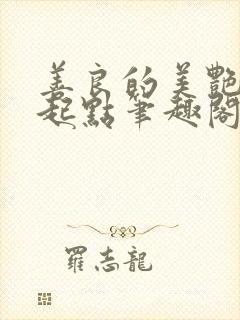 善良的美艷
起點筆趣閣
羅志龍